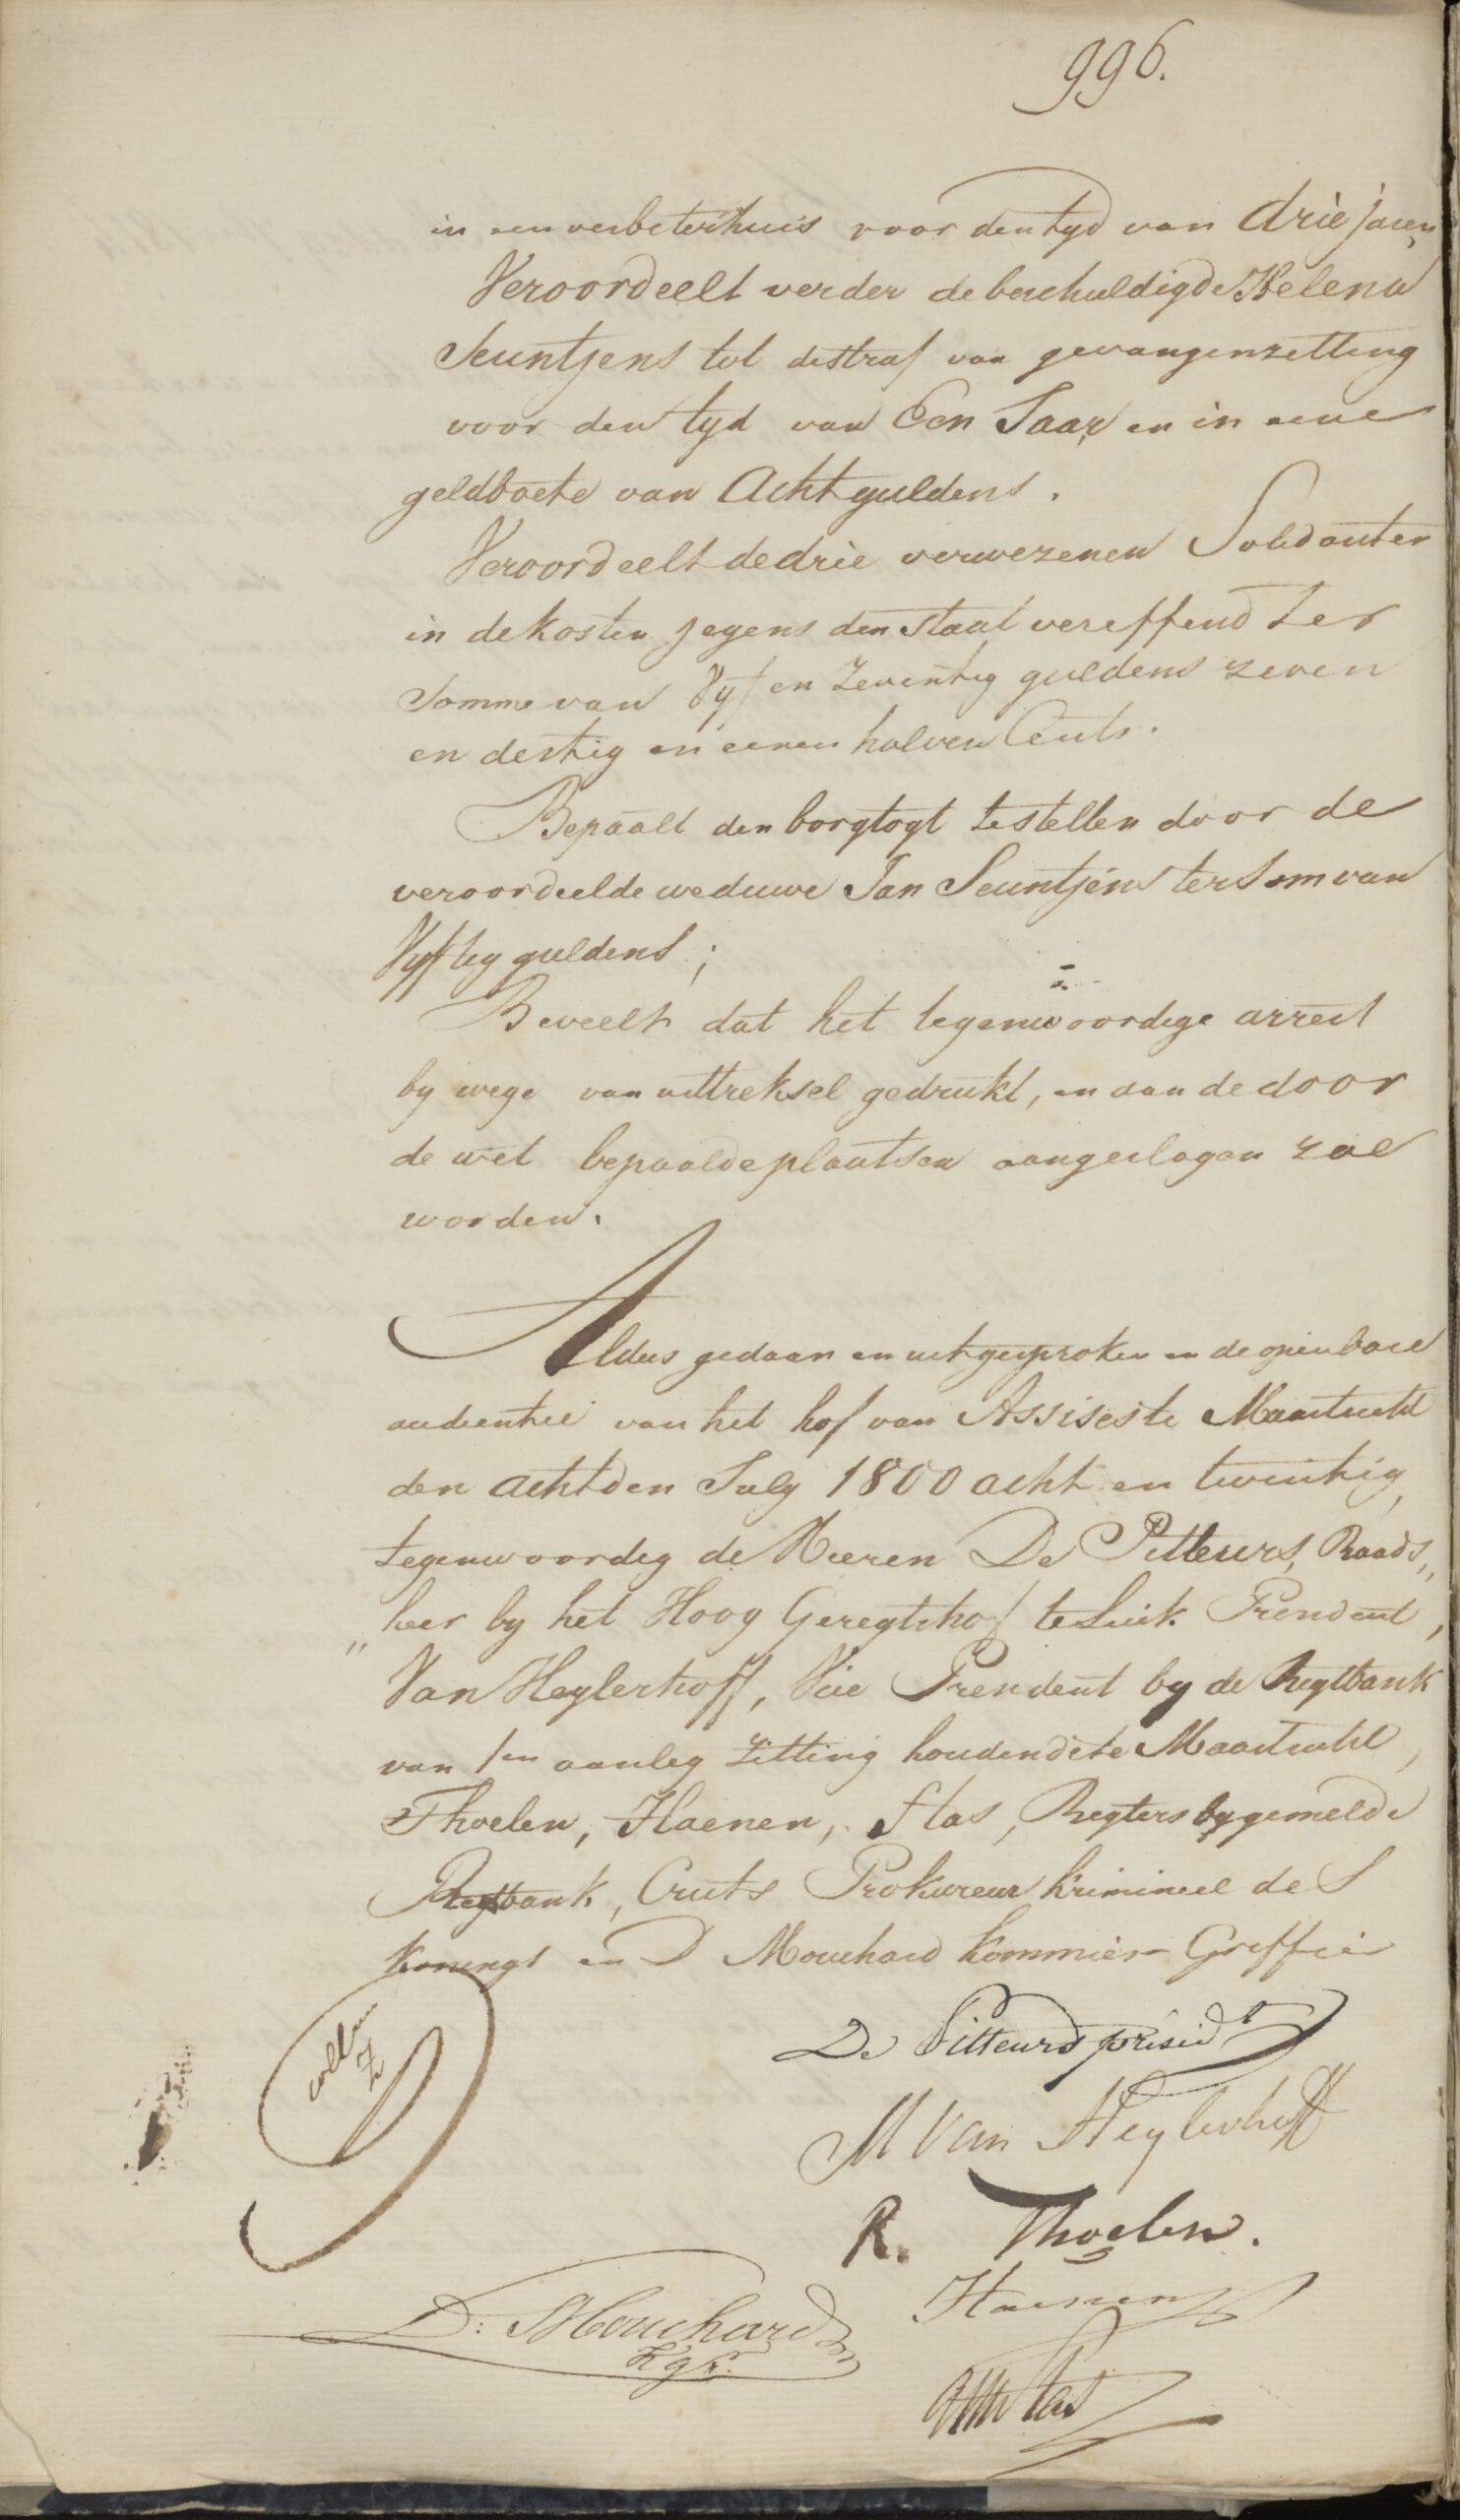 996.
in een verbeterhuis voor den tyd van drie jaren
Veroordeelt verder de beschuldigde Helena
Seuntjens tot de straf van gevangenzetting
voor den tyd van Een Jaar, en in eene
geldboete van Acht guldens.
Veroordeelt de drie verwezenen Solidauter
in de kosten jegens den Staat vereffend ter
Somme van Vyf en Zeventig guldens zeven
en dertig en eenen halven Cents.
Bepaalt den borgtogt te stellen door de
veroordeelde weduwe Jan Seuntjens ter Som van
Vyftig guldens;
Beveelt dat het tegenwoordige arrest
by wege van uittreksel gedrukt, en aan de door
de wet bepaalde plaatsen aangeslagen zal
worden.
Aldus gedaan en uitgesproken in de openbare
audientie van het hof van Assises te Maastricht
den achtden July 1800 acht en twintig,
tegenwoordig de Heeren De Pitteurs, Raads„
„heer by het Hoog Geregtshof te Luik President,
Van Heylerhoff, Vice President by de Regtbank
van 1en aanleg Zitting houdende te Maastricht,
Thoelen, Haenen, Stas, Regters by gemelde
Regtbank, Cruts Prokureur Krimineel des
Konings en D Mouchard Kommies Greffier
De Pitteurs présidt
M Van Heylerhoff
R. Thoelen.
Haenen
D: Mouchard
Kgr.
Stas